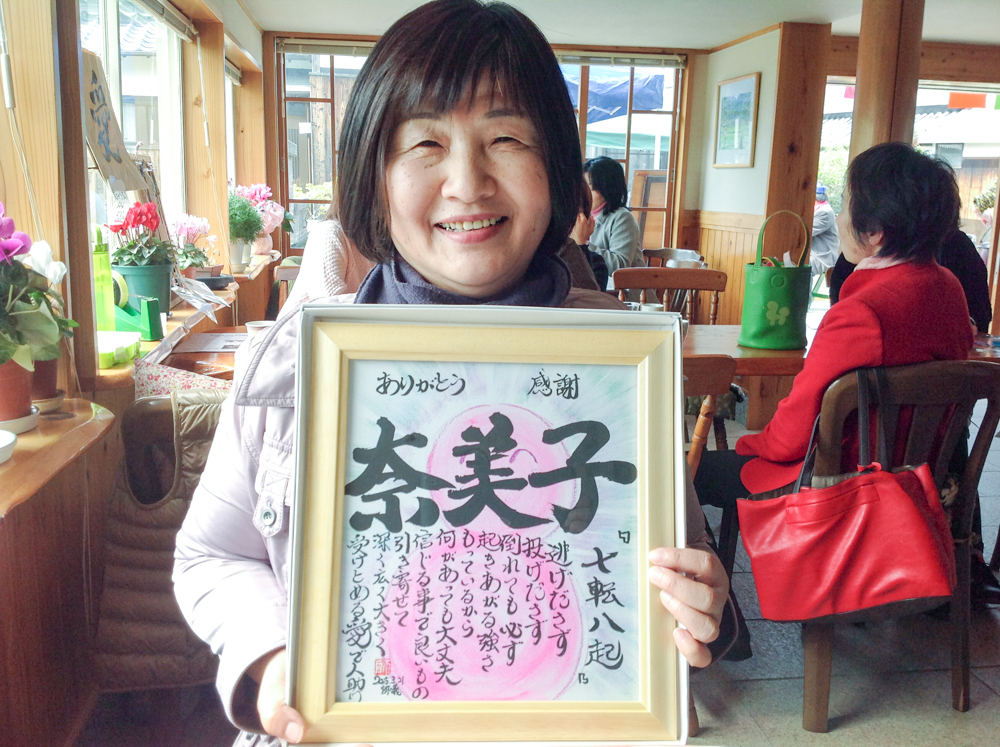 ありがとう 感謝
奈美子
七転八起
逃げださず
投げださず
倒れても必ず
起きあがる強さ
もっているから
何があっても大丈夫
信じる事で良いもの
引き寄せて
深く広く大きく
受けとめる愛で人助け
2015.3.31